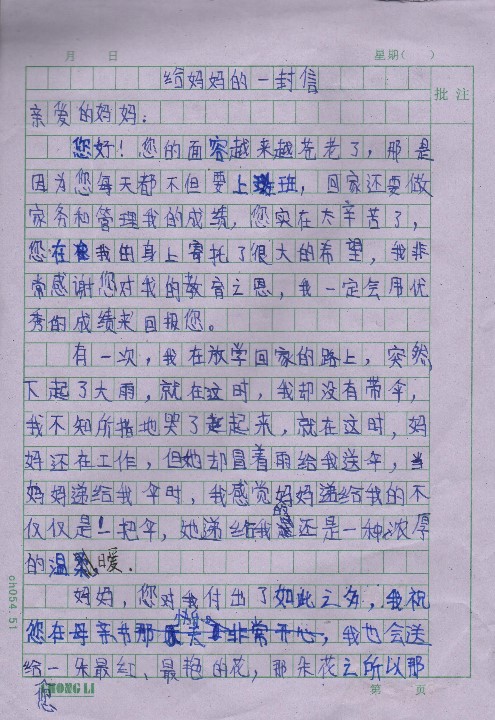 月 日 星期( )
给妈妈的一封信
批 注
亲爱的妈妈:
您好!您的面容越来越苍老了,那是
因为您每天都不但要上班,回家还要做
家务和管理我的成绩,您实在太辛苦了,
您在我的身上寄托了很大的希望,我非
常感谢您对我的教育之恩,我一定会用优
秀的成绩来回报您。
有一次,我在放学回家的路上,突然
下起了大雨,就在这时,我却没有带伞,
我不知所措地哭了起来,就在这时,妈
妈还在工作,但她却冒着雨给我送伞,当
妈妈递给我伞时,我感觉妈妈递给我的不
仅仅是一把伞,她递给我的还是一种浓厚
的温暖.
妈妈,您对我付出了如此之多,我祝
您在母亲节那天非常开心,我也会送
给您一朵最红、最艳的花,那朵花之所以那
ch054.51
HONG LI
第 页